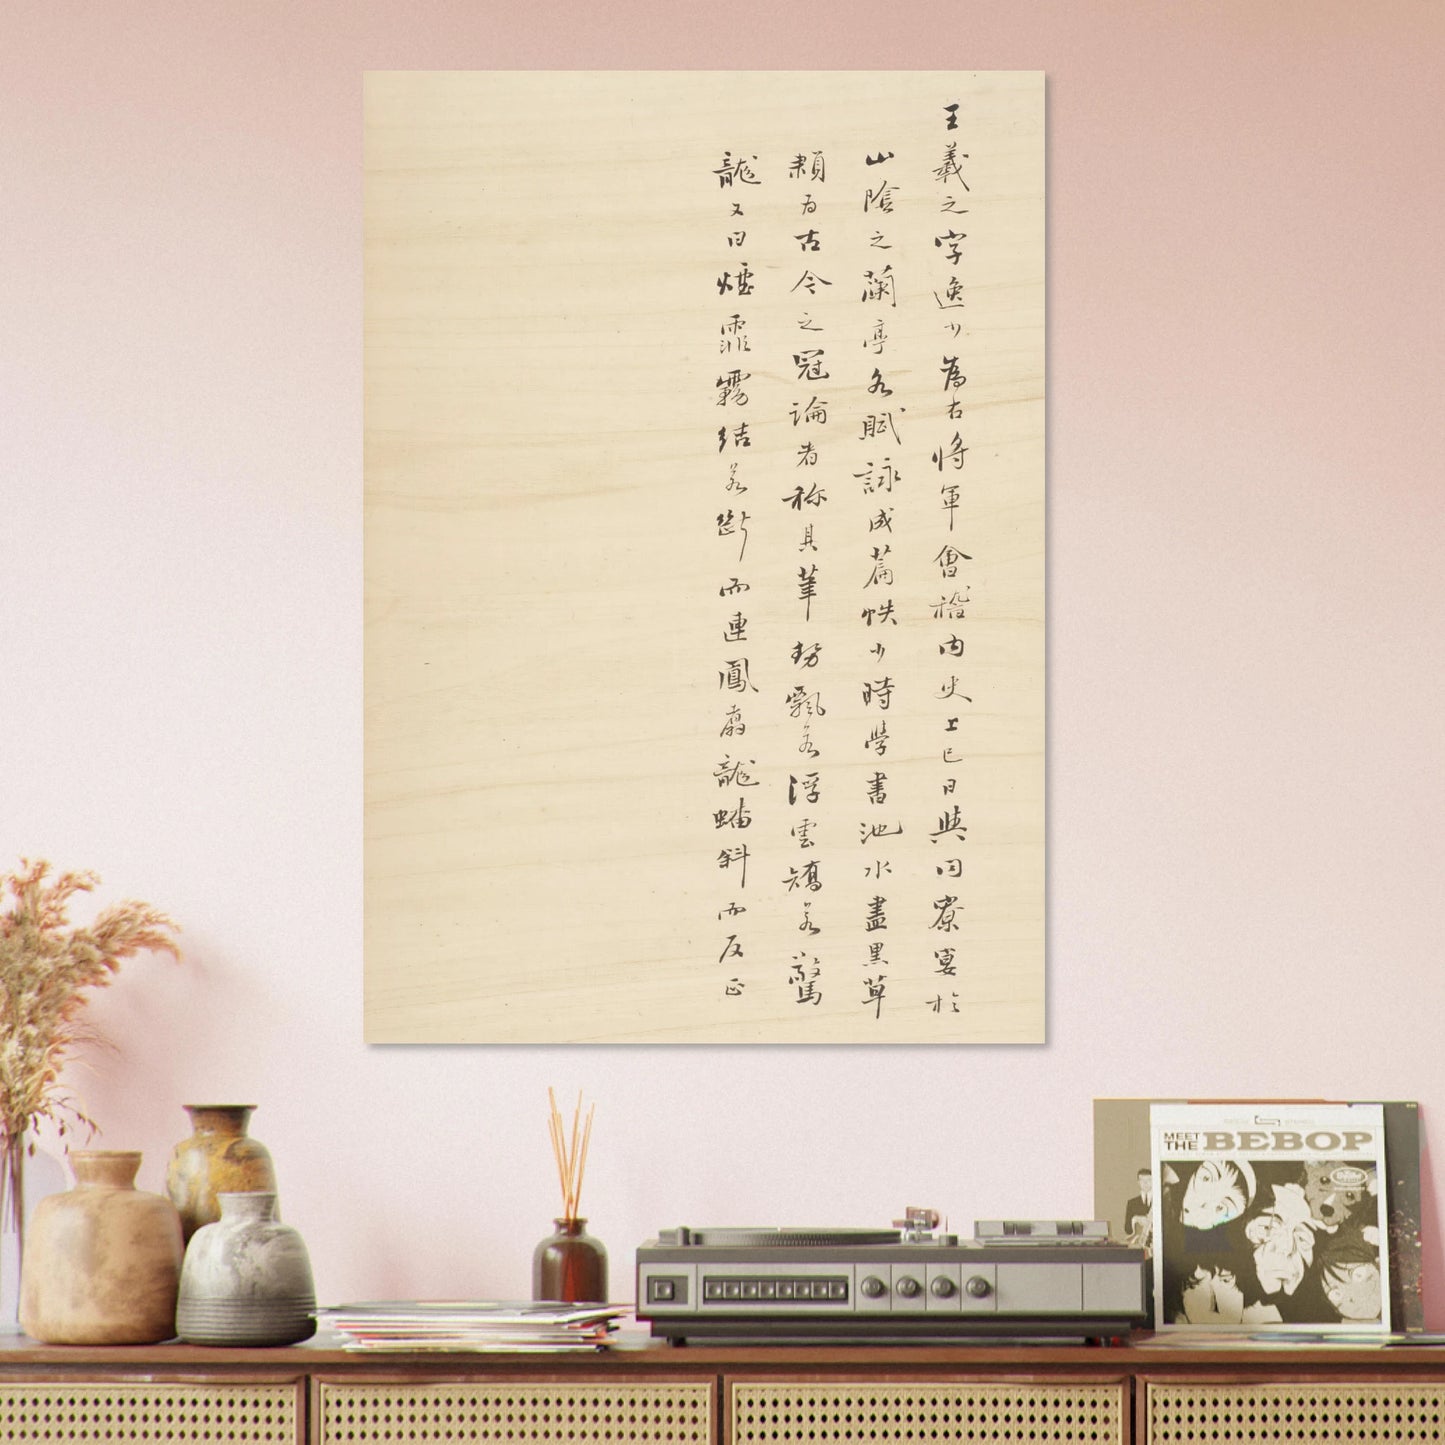 王羲之字逸少為右將軍會稽内史上巳日與同寮宴於
山陰之蘭亭各賦詠成篇帙少時學書池水盡黑草
隸為古今之冠論者称其筆勢飄若浮雲矯若驚
龍又曰煙霏霧結若斷而連鳳翥龍蟠斜而反正
MEET THE BEBOP